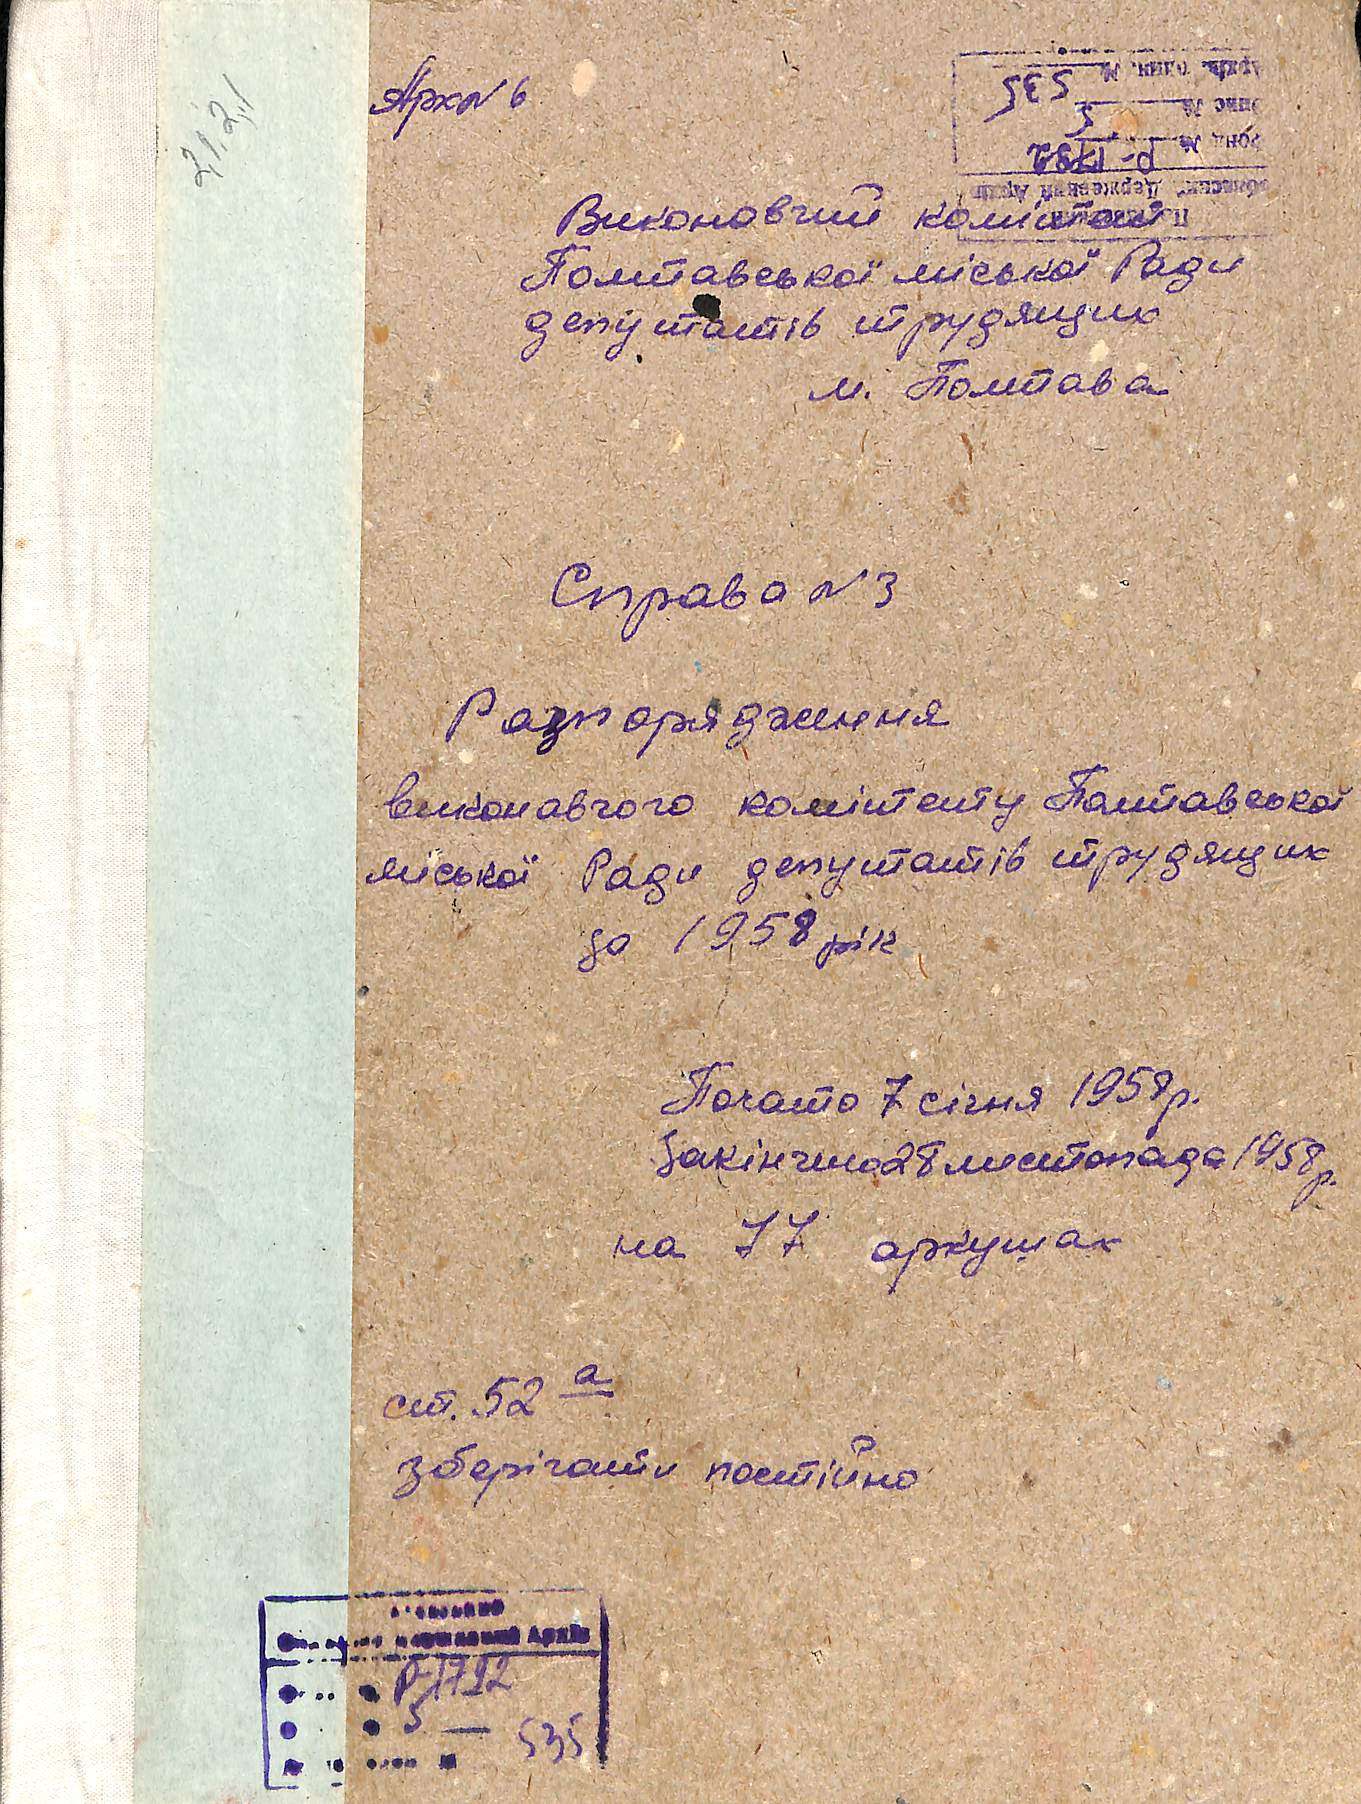 21.2.1
Арх № 6
Полтавський
Обласний Державний Архів
Фонд № Р-1792
Опис № 5
Архів. один. № 535
Виконавчий комітет
Полтавської міської Ради
депутатів трудящих
м. Полтава
Справа № 3
Розпорядження
виконавчого комітету Полтавської
міської Ради депутатів трудящих
за 1958 рік
Почато 7 січня 1958 р.
Закінчено 28 листопада 1958 р.
на 77 аркушах
ст. 52 а
зберігати постійно
Державний Архів
Р-1792
5
535